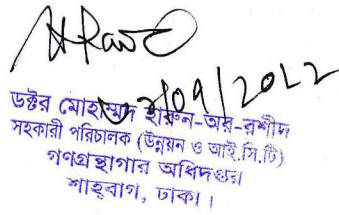 03/09/2022
ডক্টর মোহাম্মদ হারুন-অর-রশীদ
সহকারী পরিচালক (উন্নয়ন ও আই.সি.টি)
গণগ্রন্থাগার অধিদপ্তর
শাহ্‌বাগ, ঢাকা।